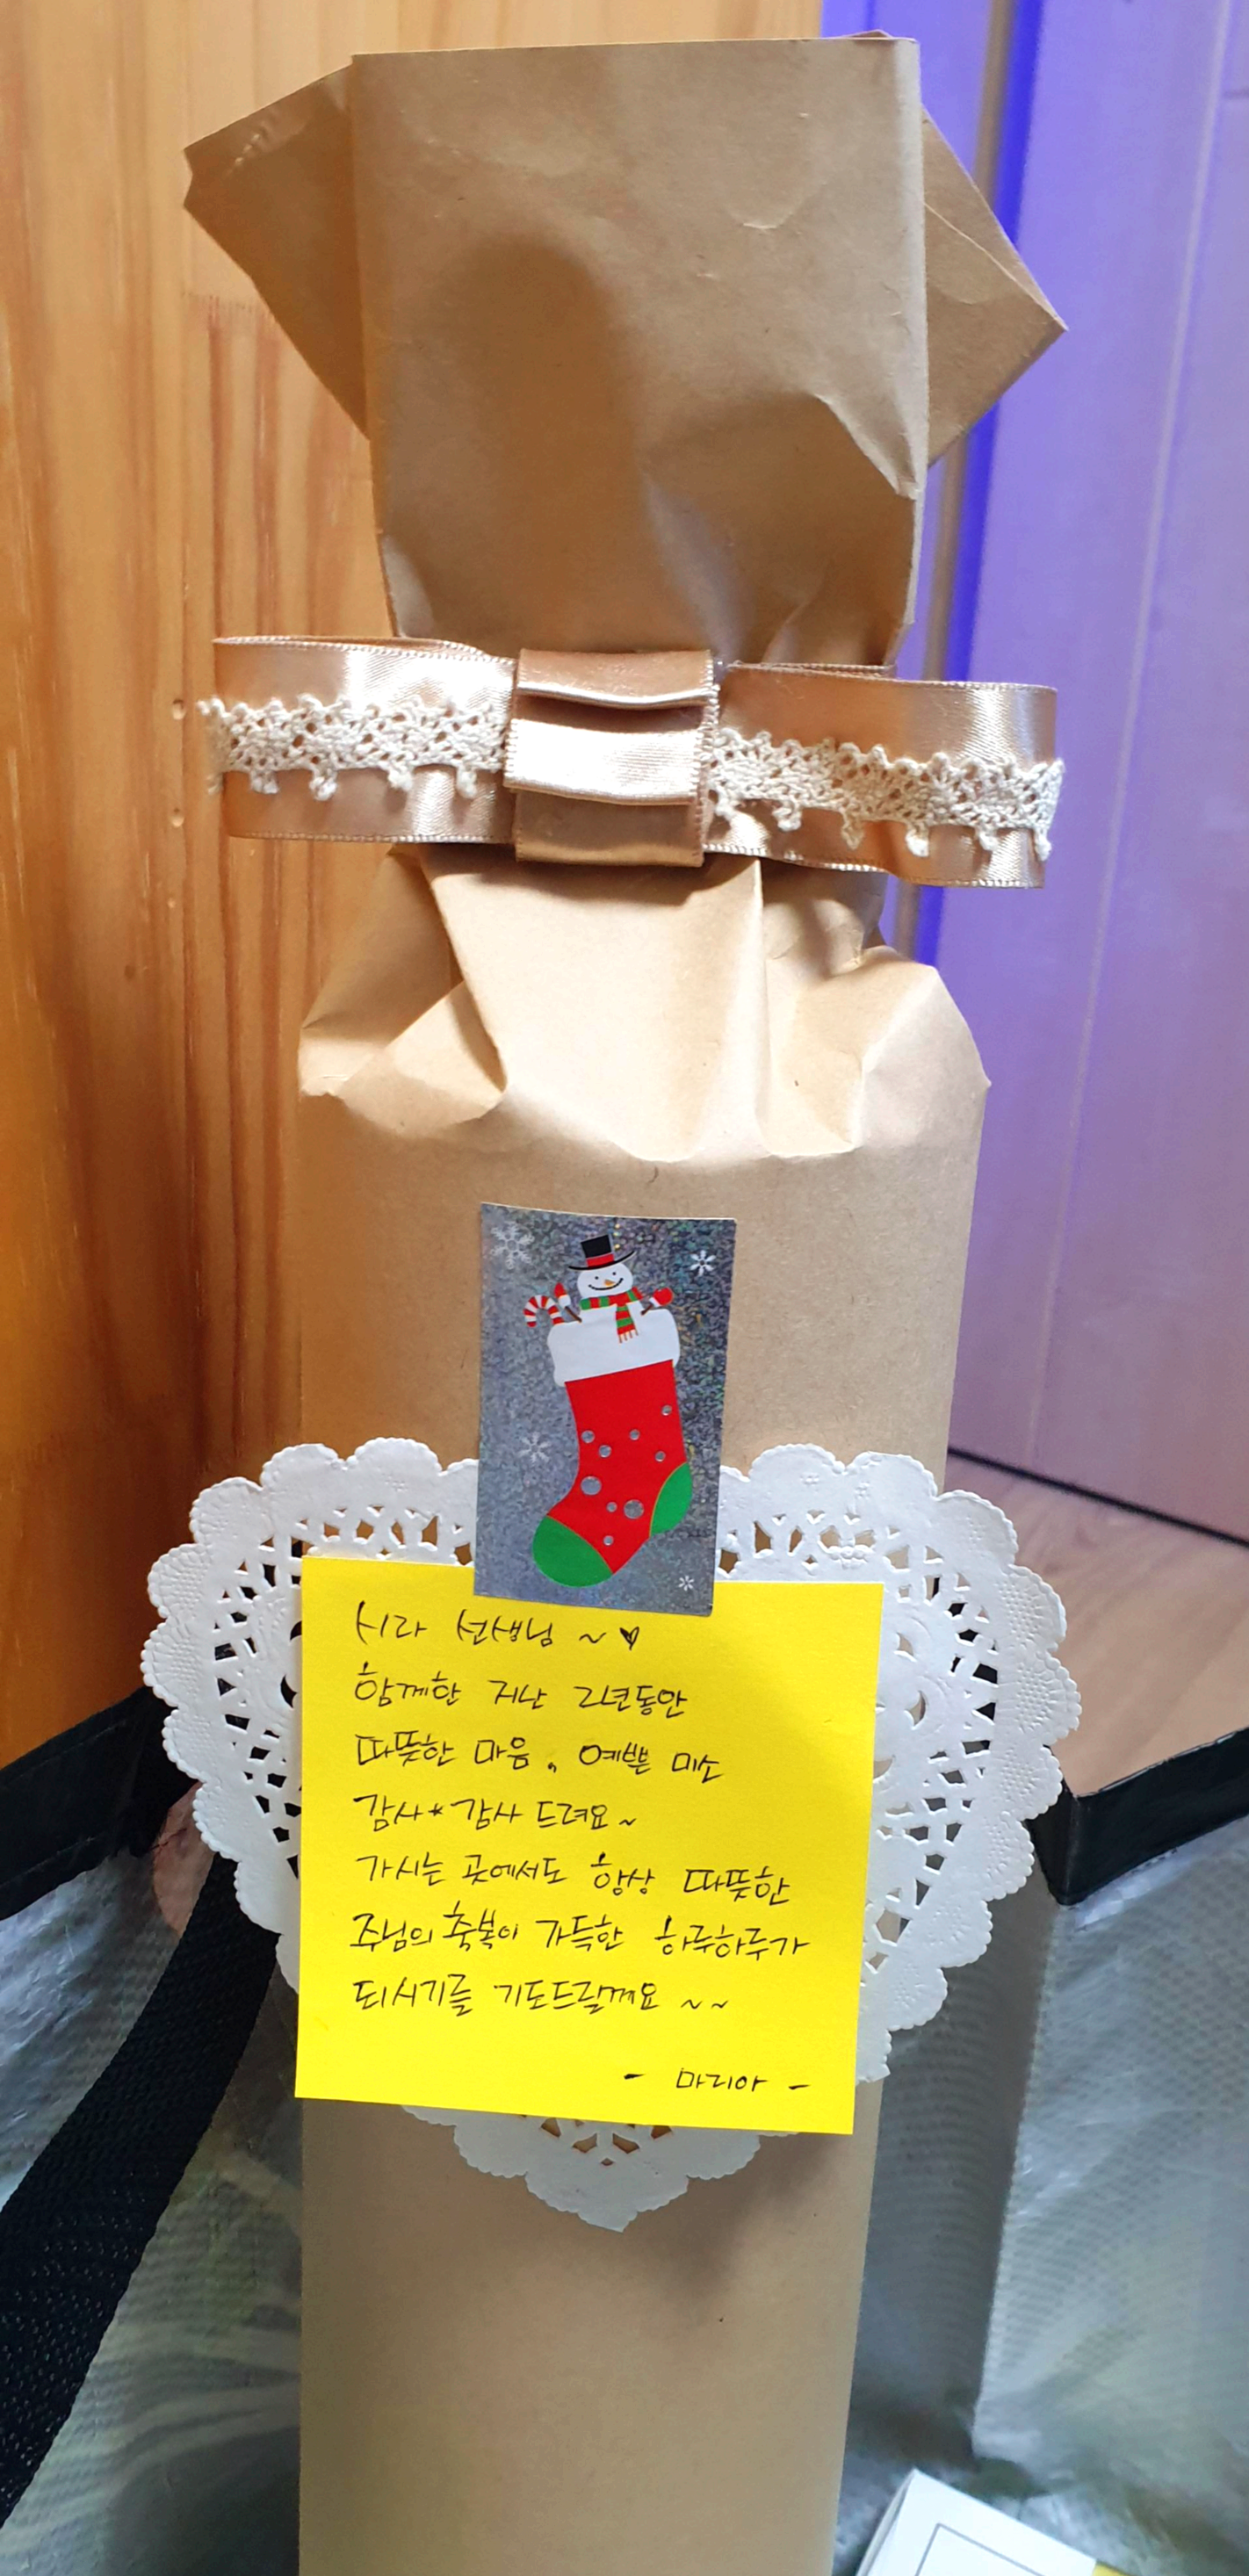 시라 선생님 ~♥
함께한 지난 2년동안
따뜻한 마음, 예쁜 미소
감사*감사 드려요~
가시는 곳에서도 항상 따뜻한
주님의 축복이 가득한 하루하루가
되시기를 기도드릴께요 ~~
- 마리아 -